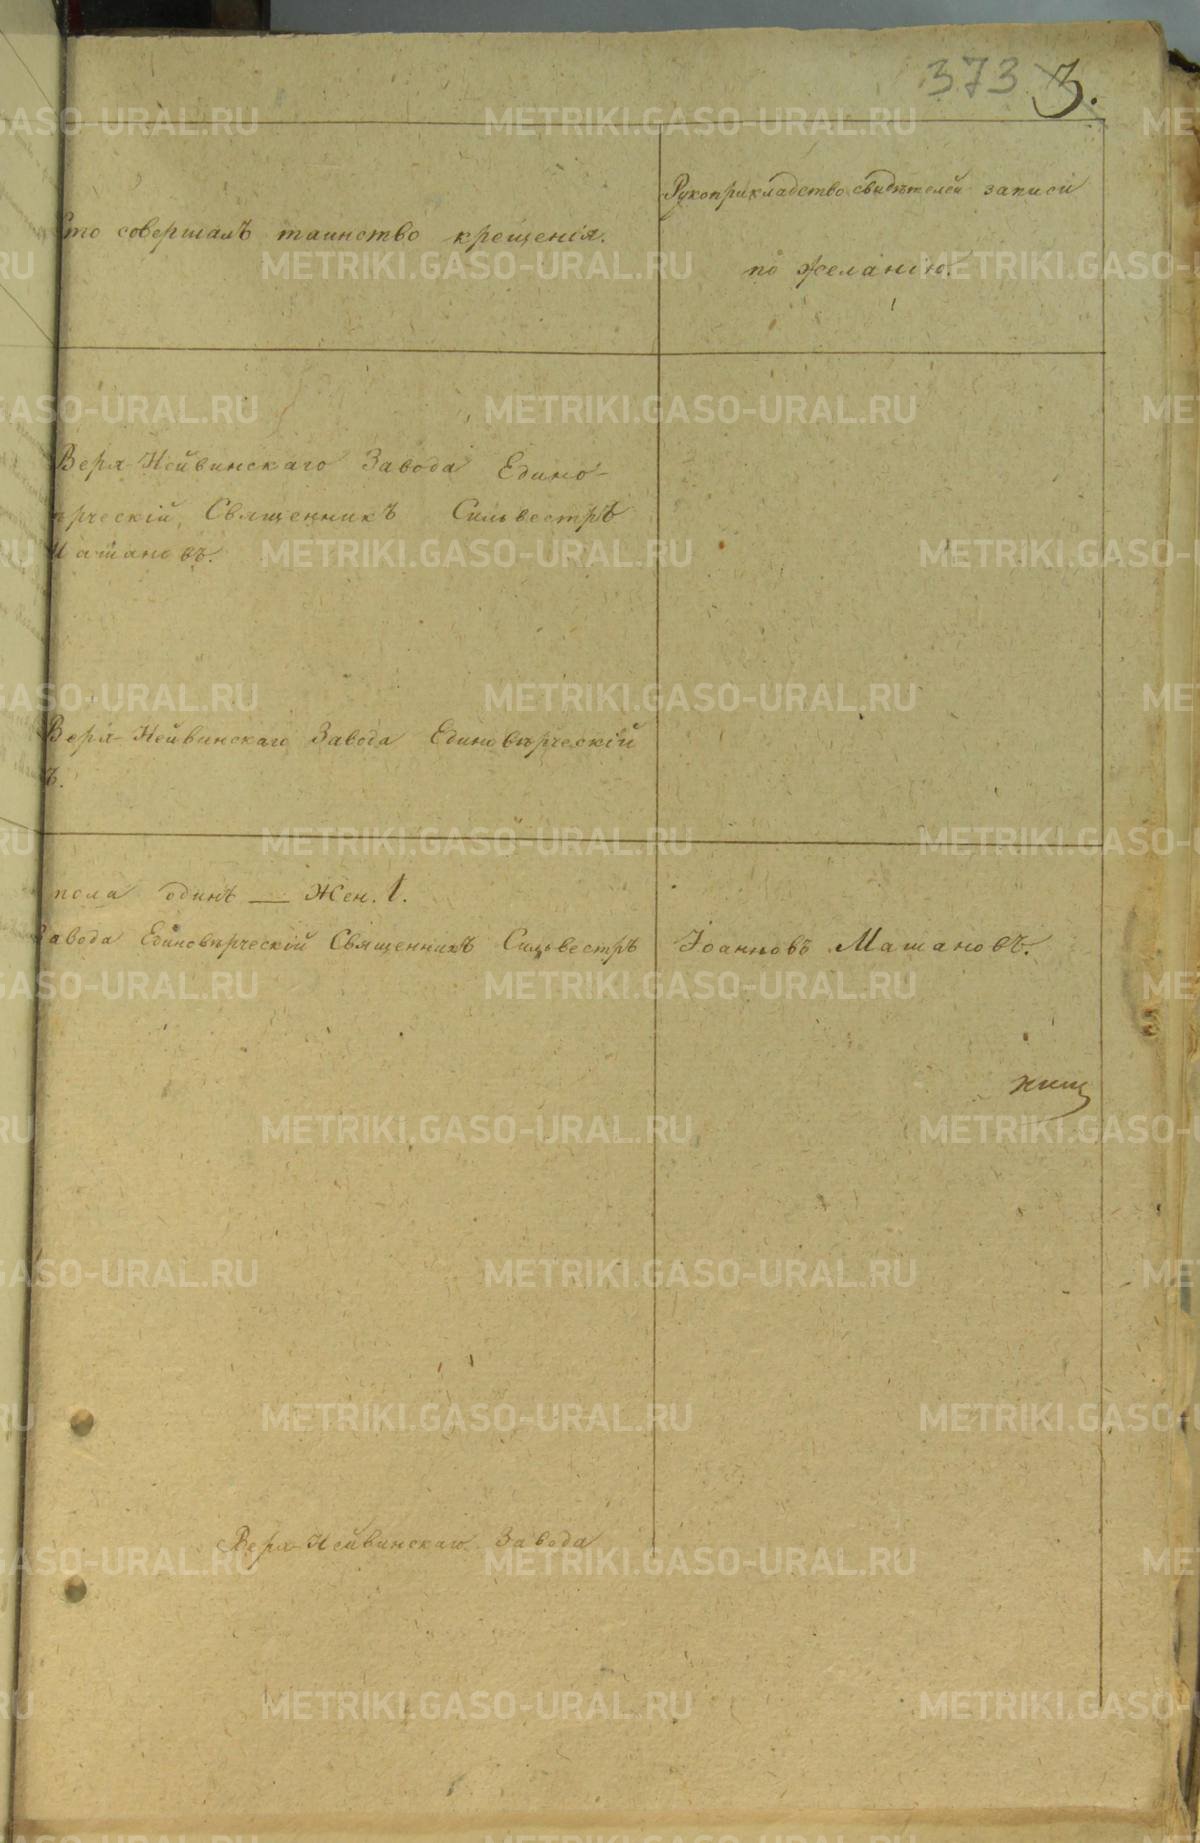 373 3.
Кто совершалъ таинство крещенія.
Рукоприкладство свидѣтелей записи
по желанію.
Верх-Нейвинскаго Завода Едино-
вѣрческій, Священникъ Сильвестръ
Машановъ.
Верх-Нейвинскаго Завода Единовѣрческій
ъ.
пола одинъ — Жен. 1.
Завода Единовѣрческій Священникъ Сильвестръ Іоанновъ Машановъ.
Верх-Нейвинскаго Завода
METRIKI.GASO-URAL.RU